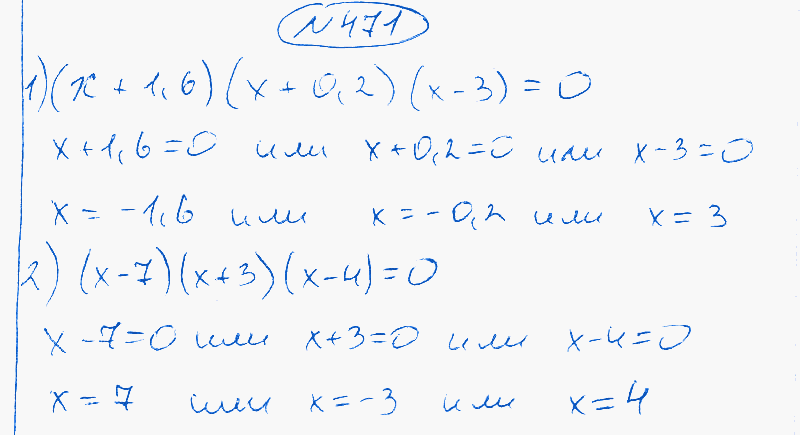 N471
1) (x + 1,6) (x + 0,2) (x - 3) = 0
x + 1,6 = 0 или x + 0,2 = 0 или x - 3 = 0
x = -1,6 или x = -0,2 или x = 3
2) (x - 7) (x + 3) (x - 4) = 0
x - 7 = 0 или x + 3 = 0 или x - 4 = 0
x = 7 или x = -3 или x = 4